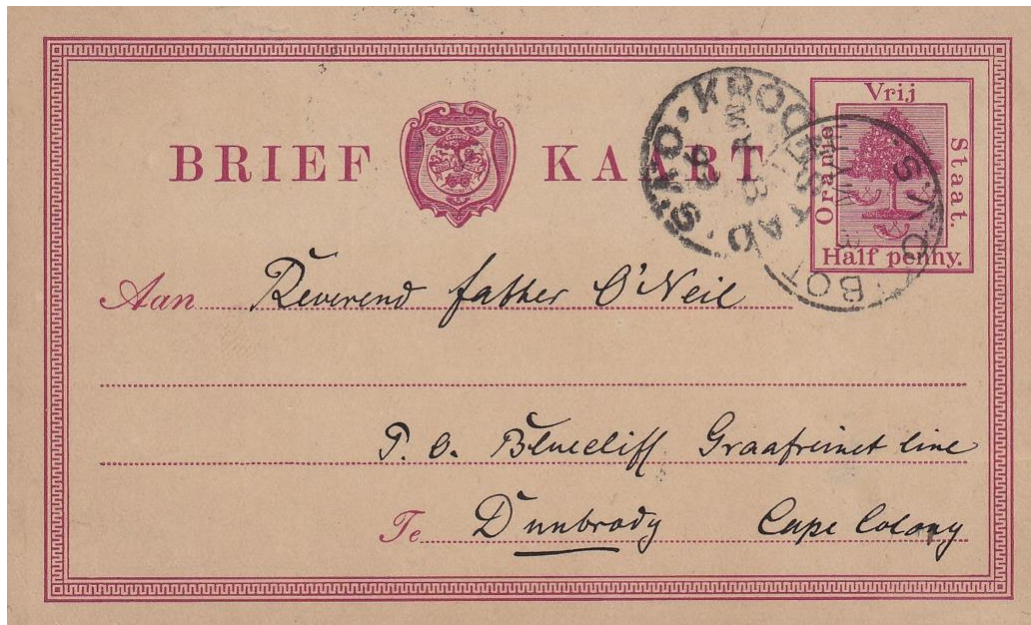 BRIEF KAART
Vrij
Oranje
Staat.
Half penny.
KROONSTAD. O.V.S.
BOT
O.V.S.
Aan Reverend father O'Neil
P. O. Bluecliff Graafreinet line
Te Dunbrody Cape Colony